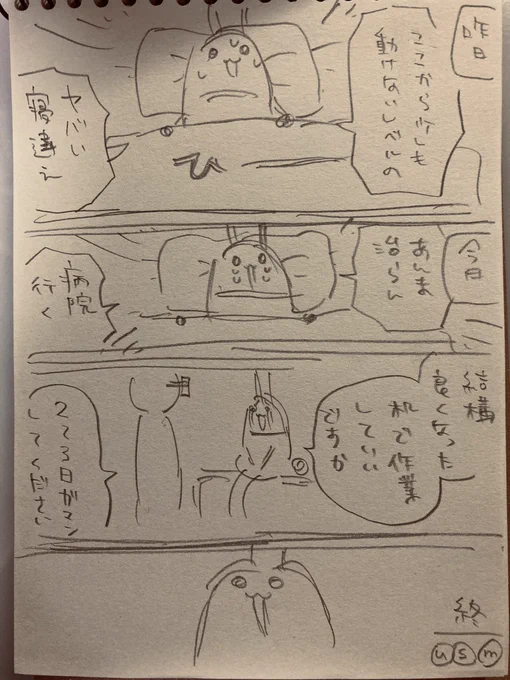 昨日
ここから少しも
動けないしぬの
ヤバい
寝違え
今日
あんま
治らん
病院
行く
結構
良くなった
机で作業
していい
ですか
2〜3日ガマン
してください
終
usm